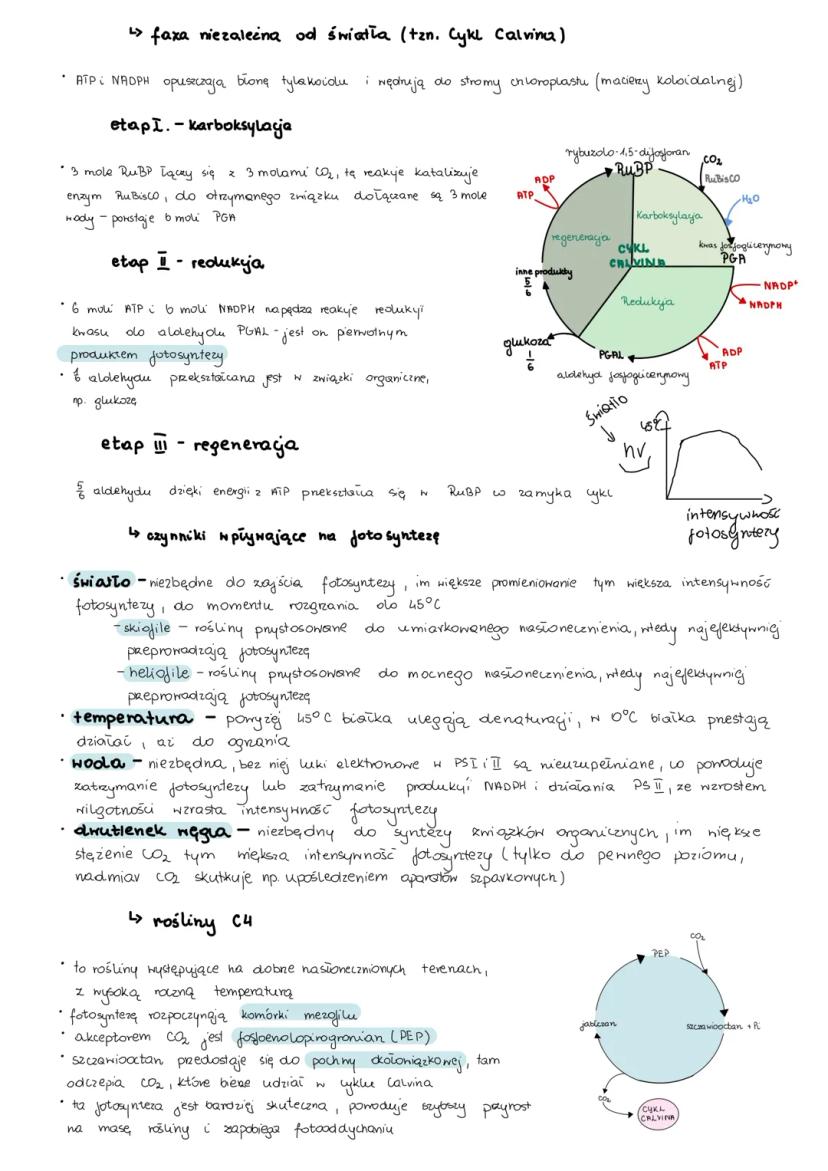 ↳ faza niezależna od światła (tzn. Cykl Calvina)
• ATP i NADPH opuszczają błonę tylakoidu i wędrują do stromy chloroplastu (macierzy koloidalnej)
etap I. - karboksylacja
• 3 mole RuBP łączy się z 3 molami CO₂, tę reakcje katalizuje
enzym RuBisCO, do otrzymanego związku dołączane są 3 mole
wody - powstaje 6 moli PGA
etap II - redukcja
• 6 moli ATP i 6 moli NADPH napędza reakcje redukcji
kwasu do aldehydu PGAL - jest on pierwotnym
produktem fotosyntezy
• 1/6 aldehydu przekształcana jest w związki organiczne,
np. glukozę
etap III - regeneracja
5/6 aldehydu dzięki energii z ATP przekształca się w RuBP co zamyka cykl
rybuzolo-1,5-difosforan
RuBP
CO₂
RuBisCO
H₂O
ADP
ATP
Karboksylacja
regeneracja
CYKL
CALVINA
kwas fosfoglicerynowy
PGA
inne produkty
5/6
Redukcja
NADP⁺
NADPH
glukoza
1/6
PGAL
ADP
ATP
aldehyd fosfoglicerynowy
światło
hv
45°C
intensywność
fotosyntezy
↳ czynniki wpływające na fotosyntezę
• światło - niezbędne do zajścia fotosyntezy, im większe promieniowanie tym większa intensywność
fotosyntezy, do momentu rozgrzania do 45°C
- skiofile - rośliny przystosowane do umiarkowanego nasłonecznienia, wtedy najefektywniej
preprowadzają fotosyntezę
- heliofile - rośliny przystosowane do mocnego nasłonecznienia, wtedy najefektywniej
preprowadzają fotosyntezę
• temperatura - powyżej 45°C białka ulegają denaturacji, w 0°C białka przestają
działać, aż do ogrzania
• woda - niezbędna, bez niej luki elektronowe w PSI i II są nieuzupełniane, co powoduje
zatrzymanie fotosyntezy lub zatrzymanie produkcji NADPH i działania PS II, ze wzrostem
wilgotności wzrasta intensywność fotosyntezy
• dwutlenek węgla - niezbędny do syntezy związków organicznych, im większe
stężenie CO₂ tym większa intensywność fotosyntezy (tylko do pewnego poziomu,
nadmiar CO₂ skutkuje np. upośledzeniem aparatów szparkowych)
↳ rośliny C4
• to rośliny występujące na dobrze nasłonecznionych terenach,
z wysoką roczną temperaturą
• fotosyntezę rozpoczynają komórki mezofilu
• akceptorem CO₂ jest fosfoenolopirogronian (PEP)
• szczawiooctan przedostaje się do pochwy okołowiązkowej, tam
odczepia CO₂, które bierze udział w cyklu Calvina
• ta fotosynteza jest bardziej skuteczna, powoduje szybszy przyrost
na masę rośliny i zapobiega fotooddychaniu
CO₂
PEP
jabłczan
szczawiooctan + Pi
CO₂
CYKL
CALVINA